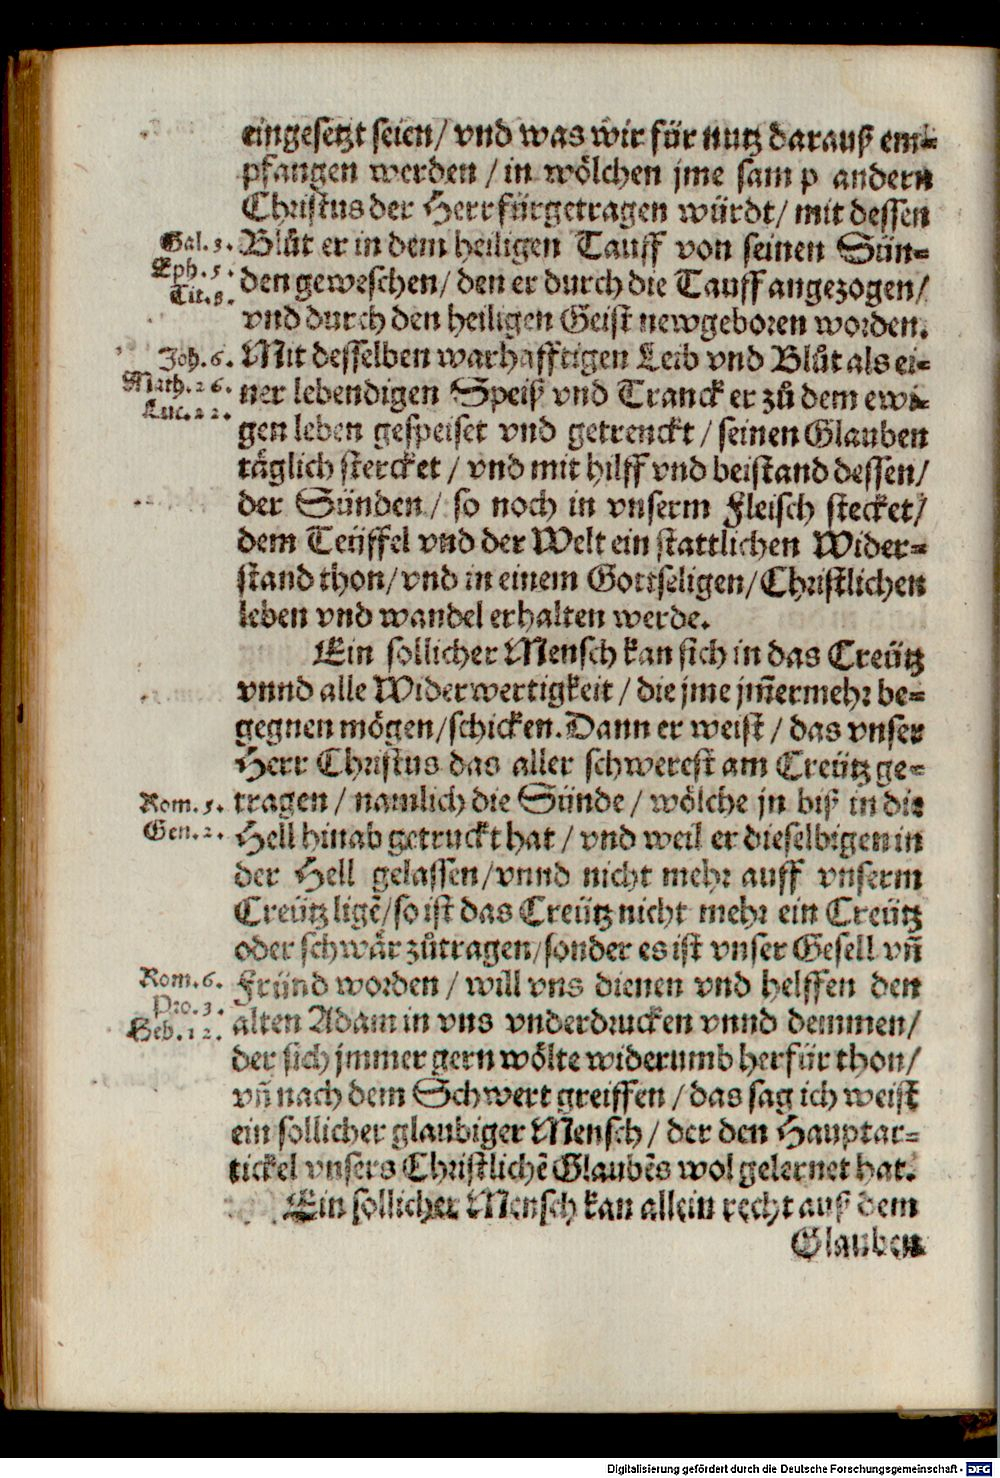 eingesetzt seien/ vnd was wir für nutz darauß em-
pfangen werden / in wölchen jme sam p andern
Christus der Herr fürgetragen würdt/ mit dessen
Gal. 3. Blůt er in dem heiligen Tauff von seinen Sün-
Eph. 5. den geweschen/ den er durch die Tauff angezogen/
Tit. 3.
vnd durch den heiligen Geist newgeboren worden.
Joh. 6. Mit desselben warhafftigen Leib vnd Blůt als ei-
Math. 26. ner lebendigen Speiß vnd Tranck er zů dem ewi-
Luc. 22.
gen leben gespeiset vnd getrenckt / seinen Glauben
täglich stercket / vnd mit hilff vnd beistand dessen/
der Sünden / so noch in vnserm Fleisch stecket/
dem Teüffel vnd der Welt ein stattlichen Wider-
stand thon/ vnd in einem Gottseligen/ Christlichen
leben vnd wandel erhalten werde.
Ein sollicher Mensch kan sich in das Creütz
vnnd alle Widerwertigkeit / die jme jm̃ermehr be-
gegnen mögen/ schicken. Dann er weist / das vnser
Herr Christus das aller schwerest am Creütz ge-
Rom. 5. tragen / namlich die Sünde / wölche jn biß in die
Gen. 2. Hell hinab getruckt hat / vnd weil er dieselbigen in
der Hell gelassen/ vnnd nicht mehr auff vnserm
Creütz ligẽ/ so ist das Creütz nicht mehr ein Creütz
oder schwär zůtragen/ sonder es ist vnser Gesell vñ
Rom. 6. Fründ worden / will vns dienen vnd helffen den
Pro. 3.
Heb. 12. alten Adam in vns vnderdrucken vnnd demmen/
der sich jmmer gern wölte widerumb herfür thon/
vñ nach dem Schwert greiffen / das sag ich weist
ein sollicher glaubiger Mensch / der den Hauptar-
tickel vnsers Christlichẽ Glaubẽs wol gelernet hat.
Ein sollicher Mensch kan allein recht auß dem
Glauben
Digitalisierung gefördert durch die Deutsche Forschungsgemeinschaft - DFG